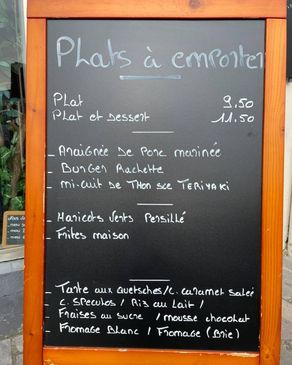 Plats à emporter
Plat 9,50
Plat et Dessert 11,50
_ Araignée De Porc marinée
_ Burger Raclette
_ mi-cuit de Thon sce TERIYAKI
_ Haricots Verts Persillé
_ Frites maison
_ Tarte aux Quetsches / C. caramel salé
_ C. Speculos / Riz au lait /
_ Fraises au sucre / mousse chocolat
_ Fromage Blanc / Fromage (Brie)